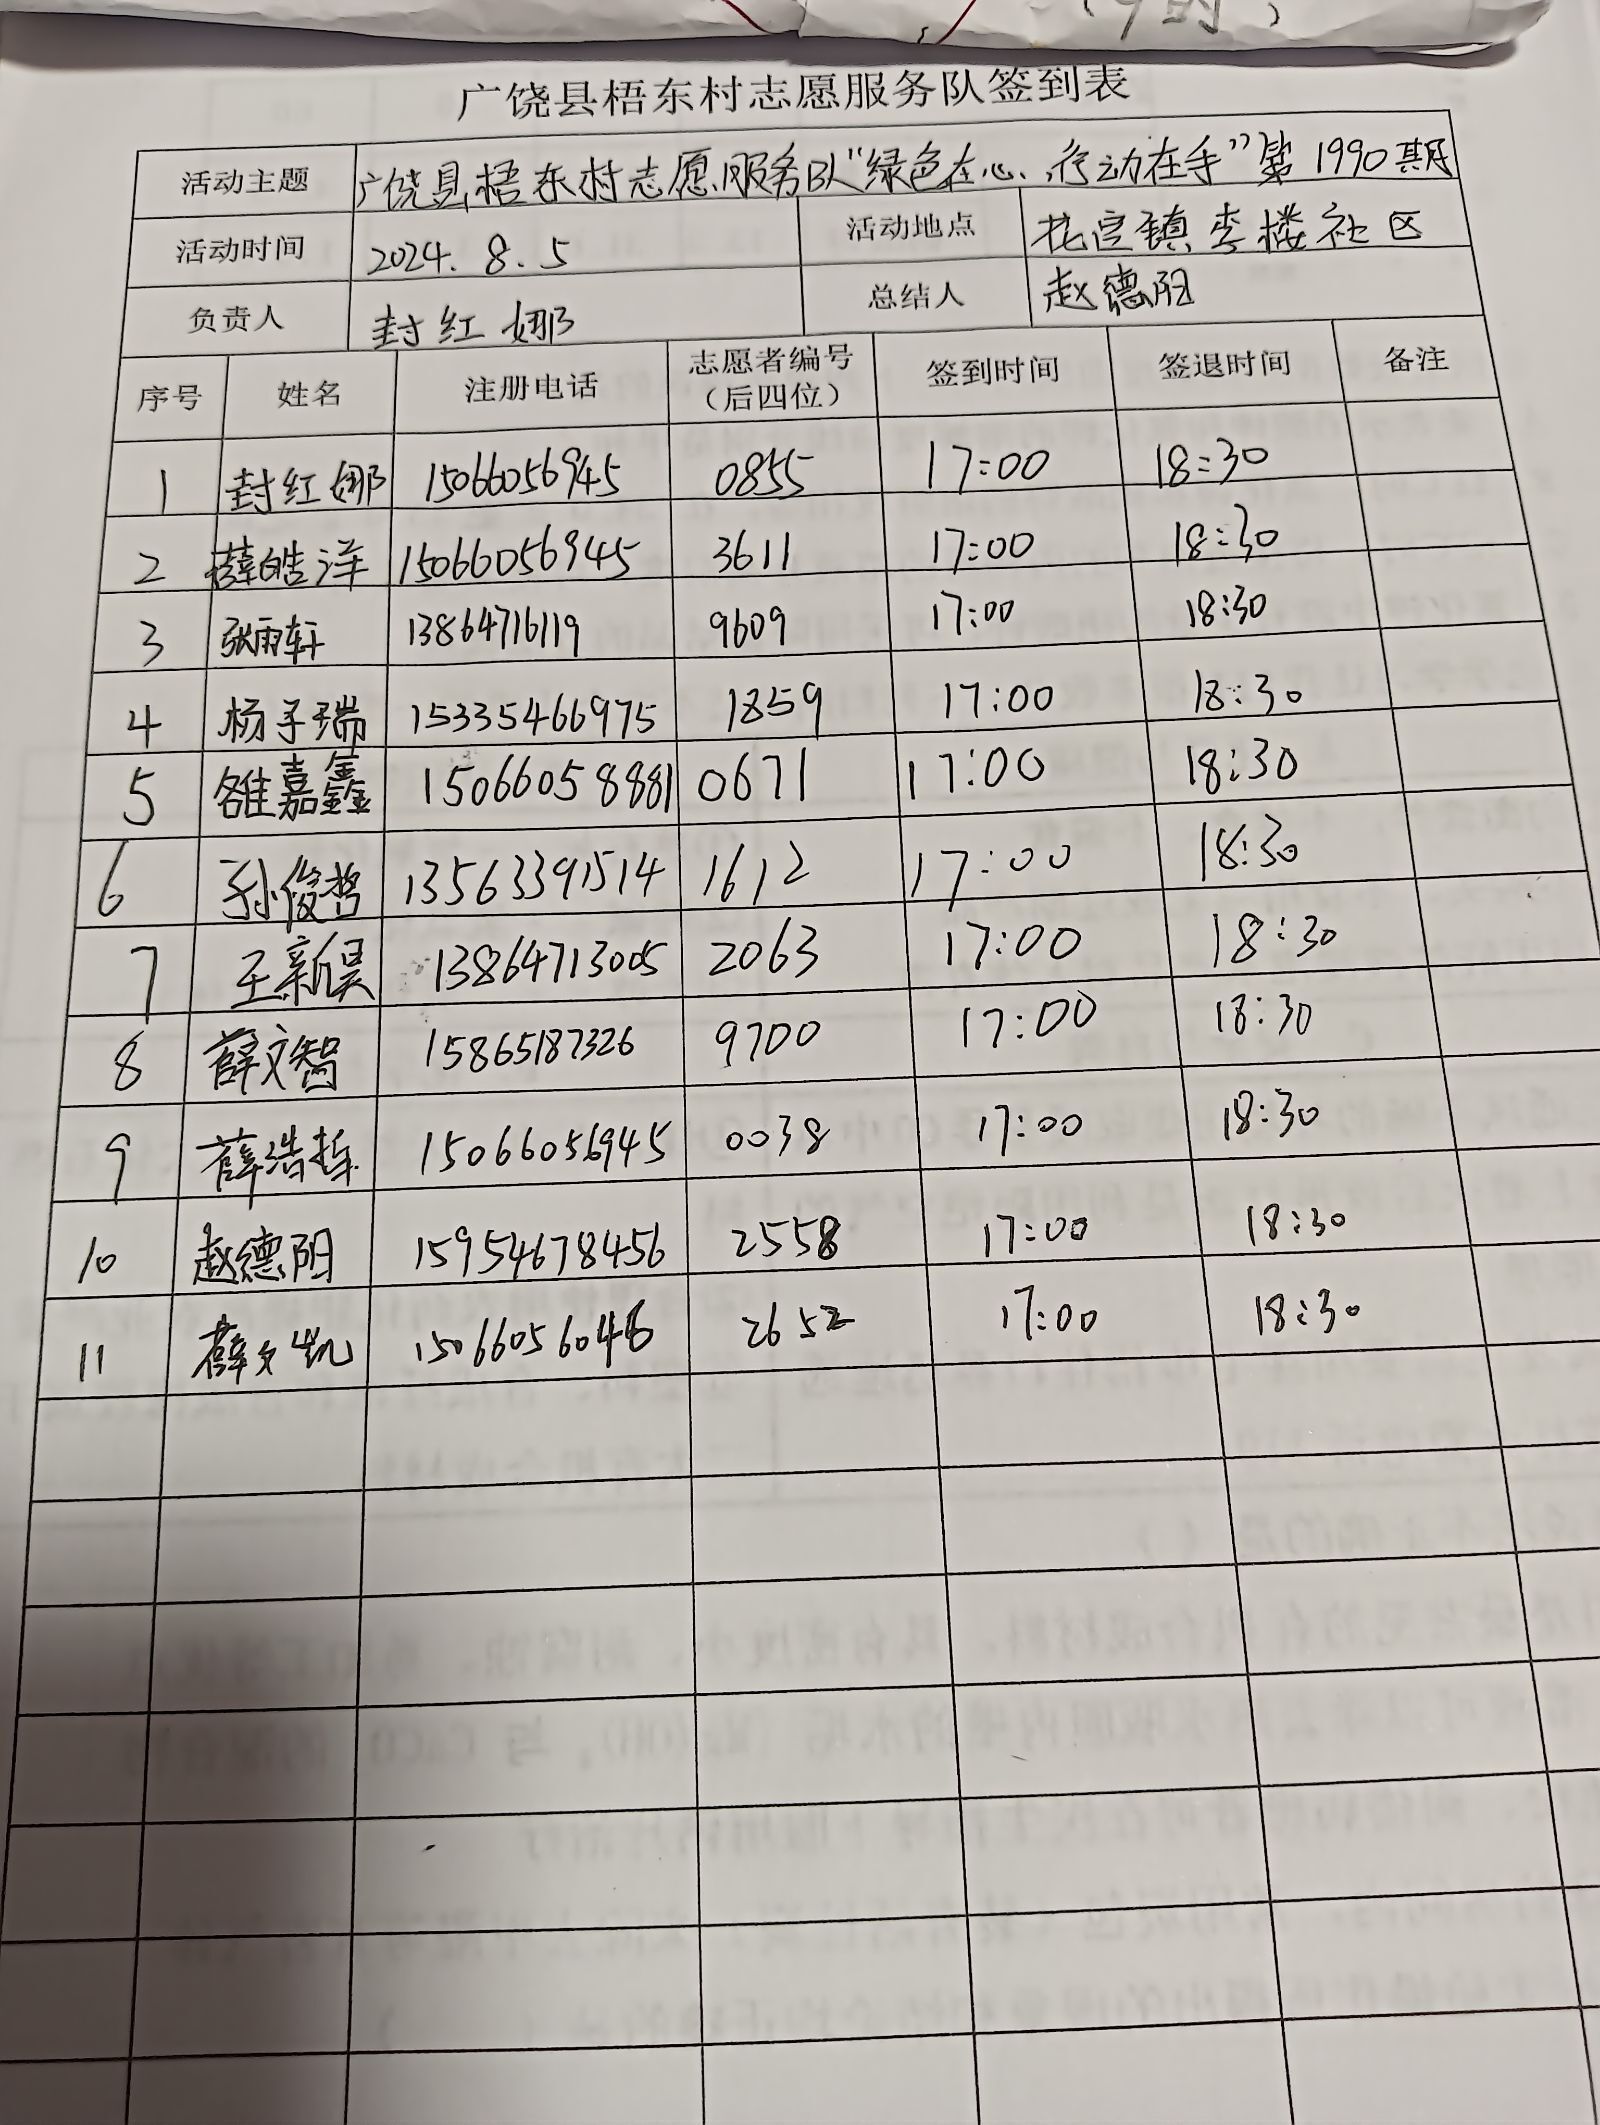 广饶县梧东村志愿服务队签到表
活动主题 广饶县梧东村志愿服务队“绿色在心、行动在手”第1990期
活动时间 2024.8.5 活动地点 花官镇李楼社区
负责人 封红娜 总结人 赵德阳
序号 姓名 注册电话 志愿者编号（后四位） 签到时间 签退时间 备注
1 封红娜 15066056945 0855 17:00 18:30
2 薛皓洋 15066056945 3611 17:00 18:30
3 张雨轩 13864716119 9609 17:00 18:30
4 杨子瑞 15335466975 1859 17:00 18:30
5 雒嘉鑫 15066058881 0671 17:00 18:30
6 孙俊哲 13563391514 1612 17:00 18:30
7 王新昊 13864713005 2063 17:00 18:30
8 薛文智 15865187326 9700 17:00 18:30
9 薛浩哲 15066056945 0038 17:00 18:30
10 赵德阳 15954678456 2558 17:00 18:30
11 薛文凯 15066056046 2652 17:00 18:30